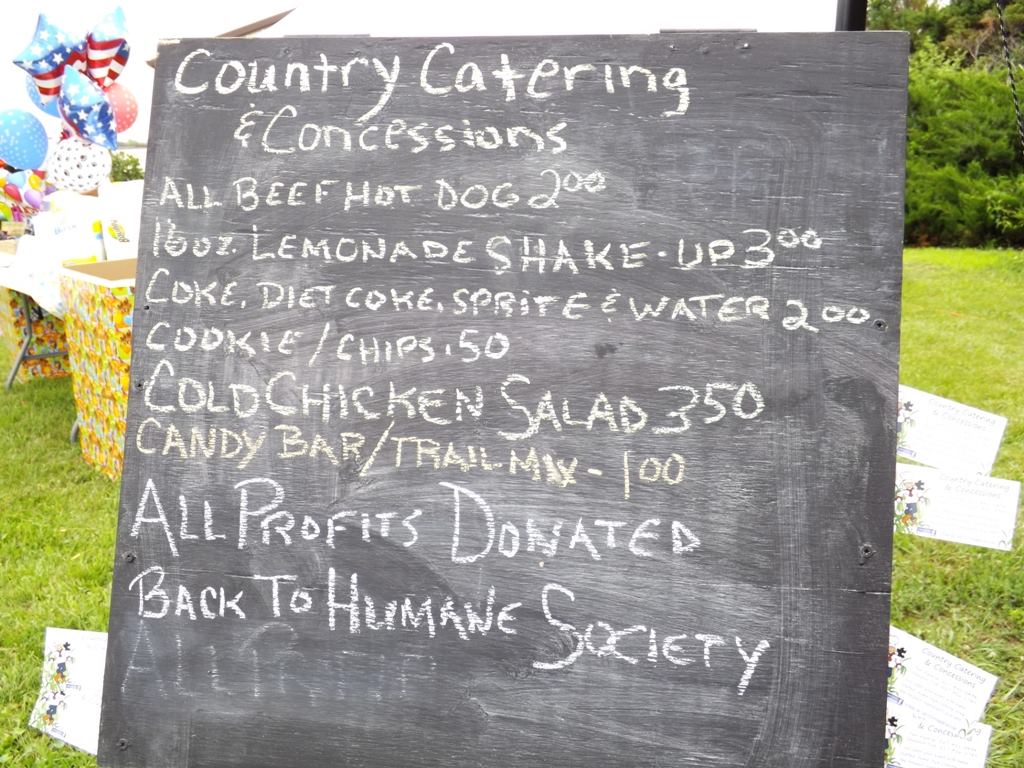 Country Catering
& Concessions
ALL BEEF HOT DOG 200
16oz. LEMONADE SHAKE-UP 300
COKE, DIET COKE, SPRITE & WATER 200
COOKIE/CHIPS .50
COLD CHICKEN SALAD 350
CANDY BAR/TRAIL MIX - 100
ALL PROFITS DONATED
BACK TO HUMANE SOCIETY
ALL
Country Catering
& Concessions
Country Catering
& Concessions
Country Catering
& Concessions
& Concessions